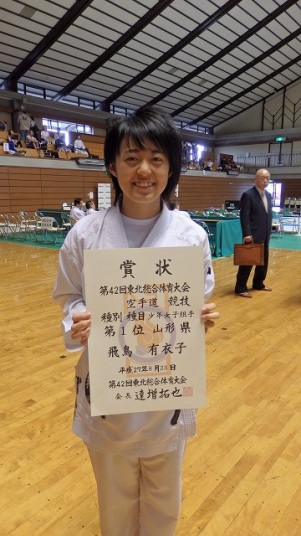 賞状
第42回東北総合体育大会
空手道 競技
種別 種目 少年女子組手
第1位 山形県
飛鳥 有衣子
平成27年8月23日
第42回東北総合体育大会
会長 達増拓也